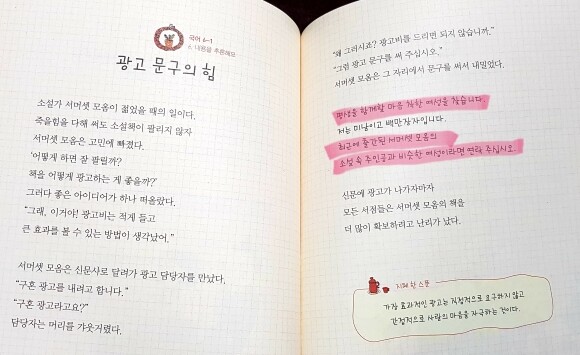 국어 6-1
6. 내용을 추론해요
광고 문구의 힘
소설가 서머셋 모옴이 젊었을 때의 일이다.
죽을힘을 다해 써도 소설책이 팔리지 않자
서머셋 모옴은 고민에 빠졌다.
‘어떻게 하면 잘 팔릴까?
책을 어떻게 광고하는 게 좋을까?’
그러다 좋은 아이디어가 하나 떠올랐다.
“그래, 이거야! 광고비는 적게 들고
큰 효과를 볼 수 있는 방법이 생각났어.”
서머셋 모옴은 신문사로 달려가 광고 담당자를 만났다.
“구혼 광고를 내려고 합니다.”
“구혼 광고라고요?”
담당자는 머리를 갸웃거렸다.
“왜 그러시죠? 광고비를 드리면 되지 않습니까.”
“그럼 광고 문구를 써 주십시오.”
서머셋 모옴은 그 자리에서 문구를 써서 내밀었다.
평생을 함께할 마음 착한 여성을 찾습니다.
저는 미남이고 백만장자입니다.
최근에 출간된 서머셋 모옴의
소설 속 주인공과 비슷한 여성이라면 연락 주십시오.
신문에 광고가 나가자마자
모든 서점들은 서머셋 모옴의 책을
더 많이 확보하려고 난리가 났다.
지혜 한 스푼
가장 효과적인 광고는 직접적으로 요구하지 않고
간접적으로 사람의 마음을 자극하는 것이다.